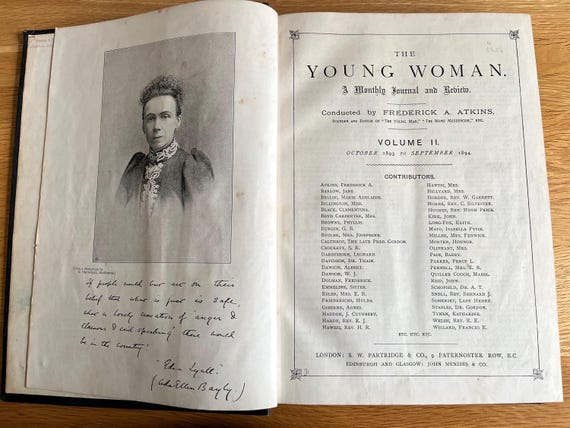 If people would but act on
is just is safe,
of anger &
speaking' there would
be in the country!
"Edna Lyall."
(Ada Ellen Bayly)
THE
YOUNG WOMAN.
A Monthly Journal and Review.
Conducted by FREDERICK A. ATKINS,
FOUNDER AND EDITOR OF "THE YOUNG MAN," "THE HOME MESSENGER," ETC.
VOLUME II.
OCTOBER 1893 TO SEPTEMBER 1894.
CONTRIBUTORS.
ATKINS, FREDERICK A.
BARLOW, JANE.
BELLOC, MARIE ADELAIDE.
BILLINGTON, MISS.
BLACK, CLEMENTINA.
BOYD CARPENTER, MRS.
BROWNE, PHYLLIS.
BURGIN, G. B.
BUTLER, MRS. JOSEPHINE.
CALTHROP, THE LATE PREB. GORDON.
CROCKETT, S. R.
DARBYSHIRE, LEONARD.
DAVIDSON, DR. THAIN.
DAWSON, ALBERT.
DAWSON, W. J.
DOLMAN, FREDERICK.
EMMELINE, SISTER.
ESLER, MRS. E. R.
FRIEDERICHS, HULDA.
GIBERNE, AGNES.
HADDEN, J. CUTHBERT.
HARDY, REV. E. J.
HAWEIS, REV. H. R.
HAWEIS, MRS.
HILLYARD, MRS.
HORDER, REV. W. GARRETT.
HORNE, REV. C. SILVESTER.
HUGHES, REV. HUGH PRICE.
KIRK, JOHN.
LONG-FOX, EDITH.
MAYO, ISABELLA FYVIE.
MILLER, MRS. FENWICK.
MORTEN, HONNOR.
OLIPHANT, MRS.
PAIN, BARRY.
PARKER, PERCY L.
PENNELL, MRS. E. R.
QUILLER COUCH, MABEL.
REID, JOHN.
SCHOFIELD, DR. A. T.
SNELL, REV. BERNARD J.
SOMERSET, LADY HENRY.
STABLES, DR. GORDON.
TYNAN, KATHARINE.
WELSH, REV. R. E.
WILLARD, FRANCES E.
ETC. ETC. ETC.
LONDON: S. W. PARTRIDGE & CO., 9 PATERNOSTER ROW, E.C.
EDINBURGH AND GLASGOW: JOHN MENZIES & CO.